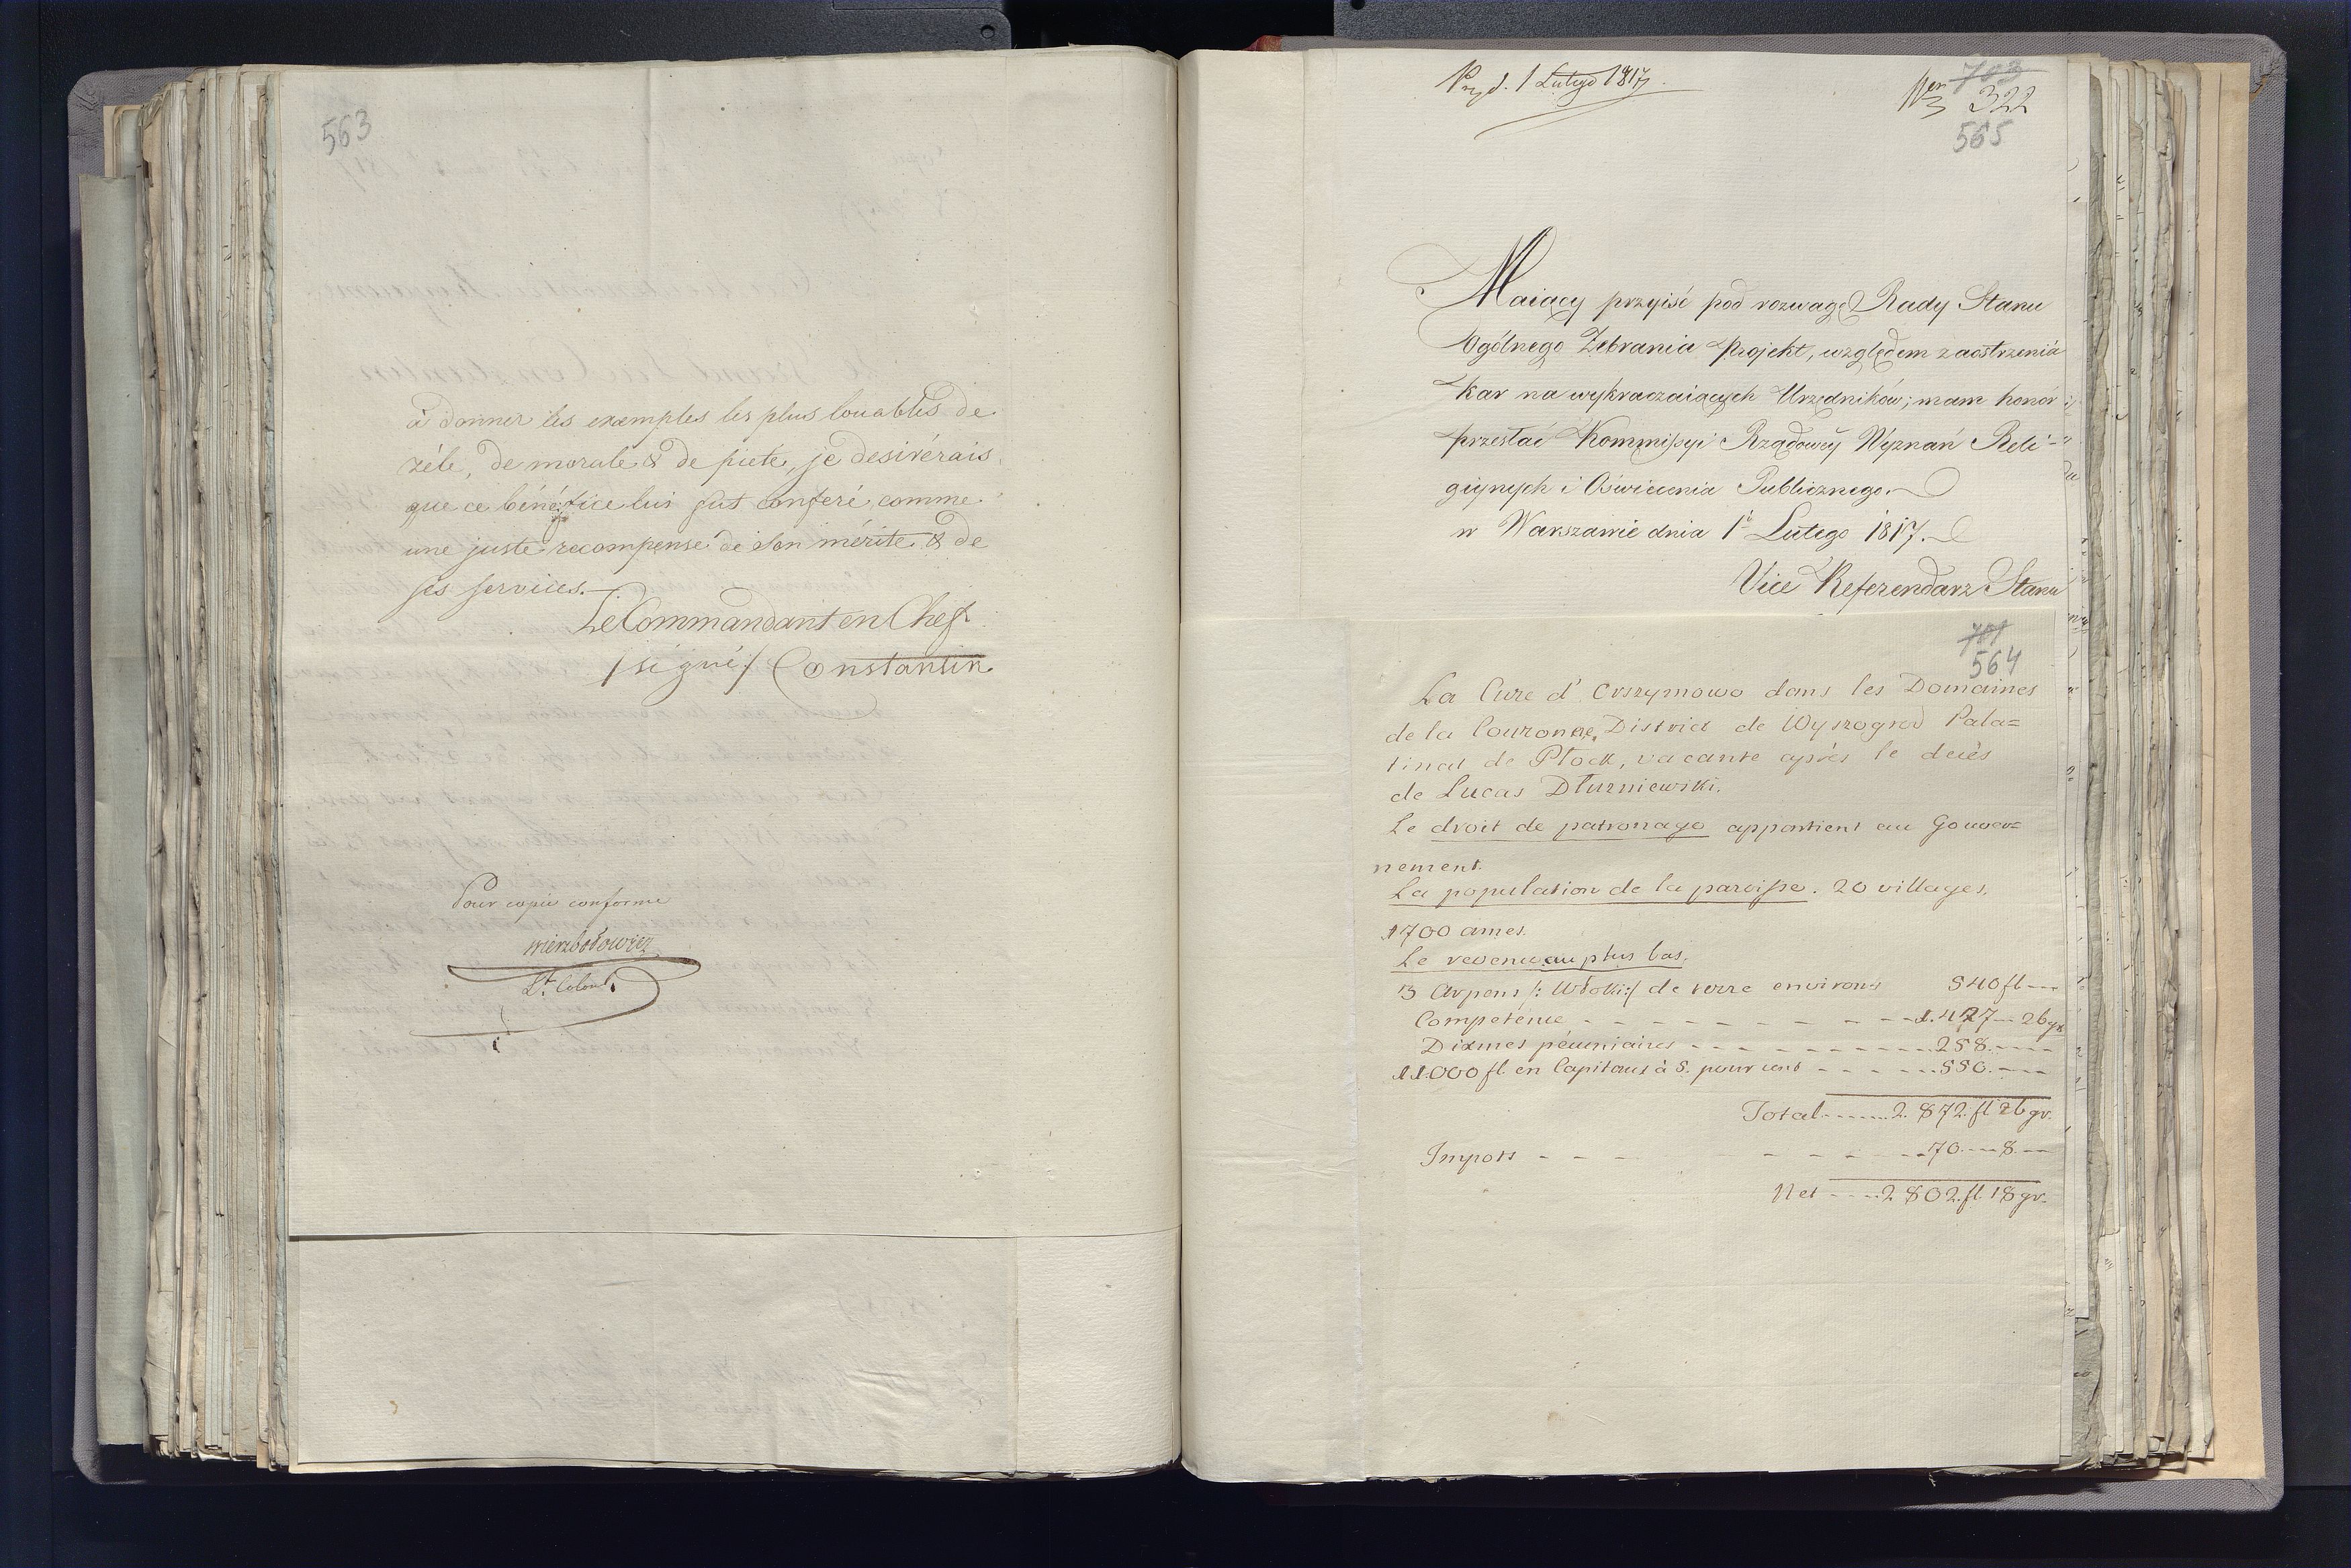 563
à donner les exemples les plus louables de
zéle, de morale & de pieté, je desirérais
que ce bénéfice lui fut conferé, comme
une juste recompense de son mérite & de
ses services.
Le Commandant en Chef
/signé/ Constantin
Pour copie conforme
Wierzbołowicz
Lt. Colonel
Pr: d. 1 Lutego 1817.
703
Ner 322
565
Maiący przyiść pod rozwagę Rady Stanu
Ogólnego Zebrania projekt, względem zaostrzenia
kar na wykraczaiących Urzędników; mam honor
przesłać Kommissyi Rządowey Wyznań Reli-
giynych i Oświecenia Publicznego.
w Warszawie dnia 1 Lutego 1817.
Vice Referendarz Stanu
701
564
La Cure d' Orszymowo dans les Domaines
de la Couronne, District de Wyszogrod Pala=
tinat de Plock, vacante après le decès
de Lucas Dłużniewski.
Le droit de patronage appartient au Gouver=
nement.
La population de la paroisse. 20 villages.
1700 ames.
Le revenu au plus bas.
3 Arpens /: Włoki :/ de terre environs 540 fl ---
Competence - - - - - - - - 1.427 -- 26 gr
Dixmes pécuniaires - - - - - - - - 258. ----
11.000 fl. en Capitaux à 5. pour cent - - - - 550. ---
Total ------ 2.872 fl 26 gr.
Impots - - - - - - - 70 --- 8. --
Net ---- 2.802. fl. 18 gr.